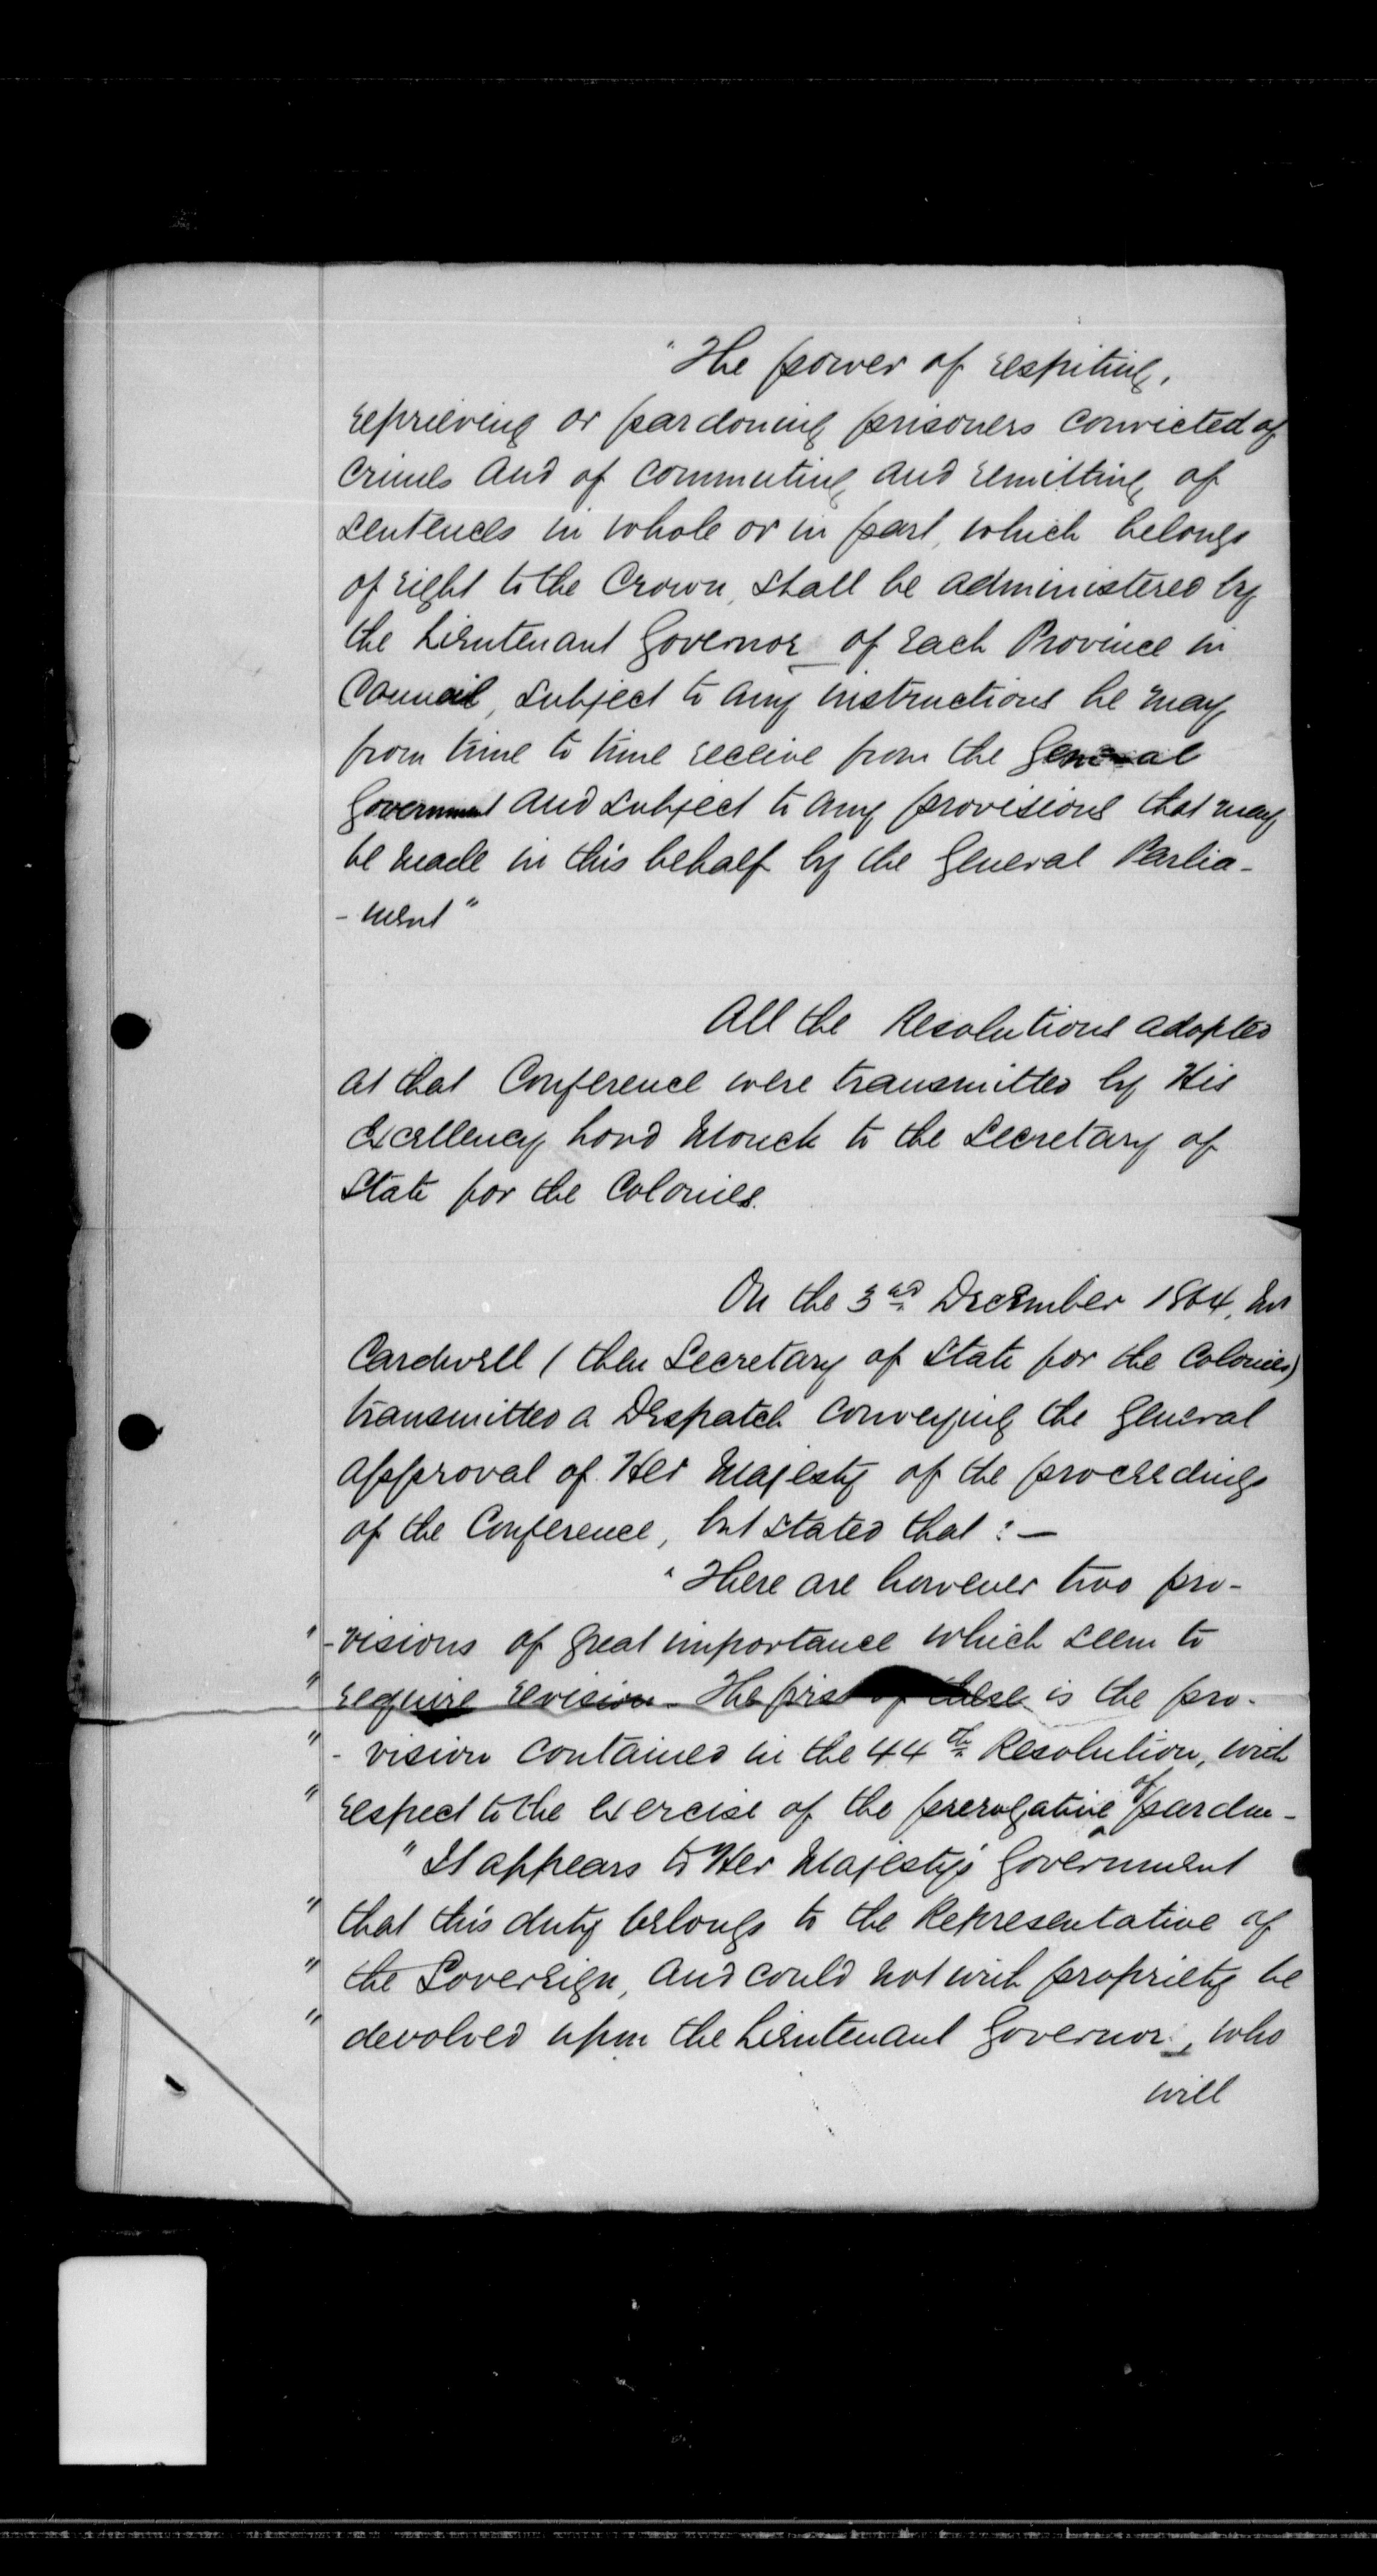 "The power of respiting,
reprieving or pardoning prisoners convicted of
crimes and of commuting and remitting of
sentences in whole or in part, which belongs
of right to the Crown, shall be administered by
the Lieutenant Governor of each Province in
Council, subject to any instructions he may
from time to time receive from the General
Government and subject to any provisions that may
be made in this behalf by the General Parlia-
-ment"
All the Resolutions adopted
at that Conference were transmitted by His
Excellency Lord Monck to the Secretary of
State for the Colonies.
On the 3rd December 1864, Mr
Cardwell (then Secretary of State for the Colonies)
transmitted a Despatch conveying the general
approval of Her Majesty of the proceedings
of the Conference, but stated that :—
"There are however two pro-
" -visions of great importance which seem to
" require revision. The first of these is the pro-
" - vision contained in the 44th Resolution, with
" respect to the exercise of the prerogative of pardon -
" It appears to Her Majesty's Government
" that this duty belongs to the Representative of
" the Sovereign, and could not with propriety be
" devolved upon the Lieutenant Governor, who
will